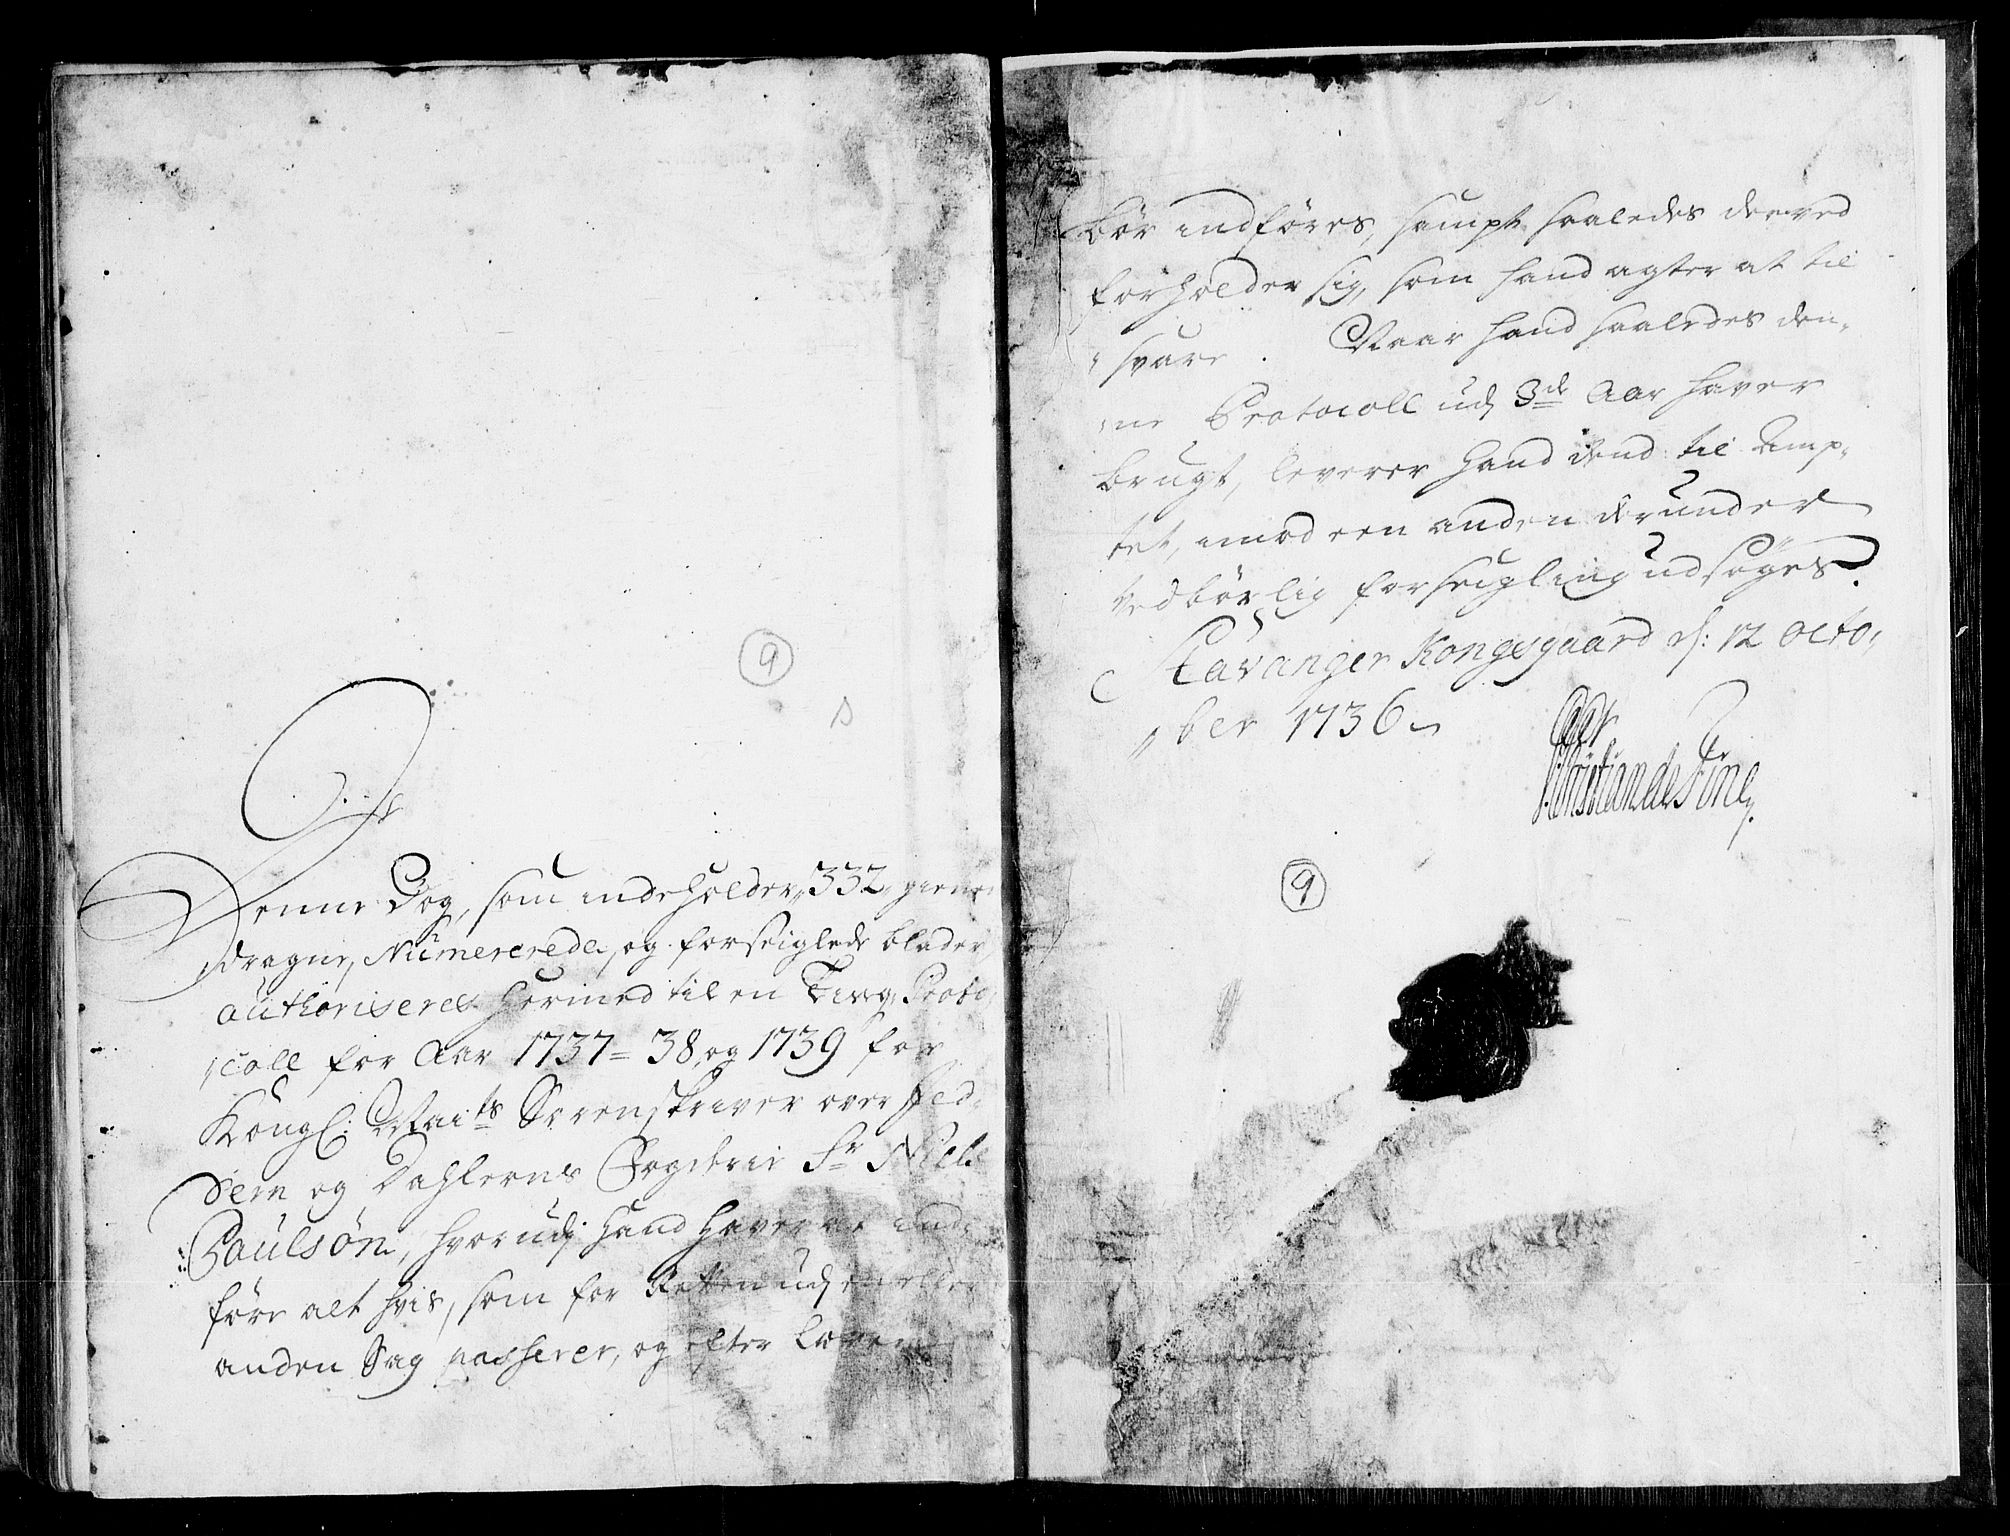 9
Denne Bog, som indeholder, 332, gienem
dragne, Numererede, og forseiglede blader,
authoriseres hermed til en Ting, Proto,
,coll for Aar 1737 = 38, og 1739 for
Kongl: Maits Sorenskriver over Jed,
deren og Dahlerns Fogderie Sr Niels
Paulsøn, hvorudj hand haver at ind,
føre alt hvis, som for Retten udj en eller
anden Sag passerer, og efter Loven
bør indføres, sampt saaledes derved
forholder sig, som hand agter at til
,svare. Naar hand saaledes den,
,ne Protocoll udj 3de Aar haver
brugt, leverer hand dend til Amp,
tet, imod een anden derunder
vedbørlig forseigling udsøges.
Stavanger Kongsgaard d: 12 Octo,
,ber 1736
de Fine
9